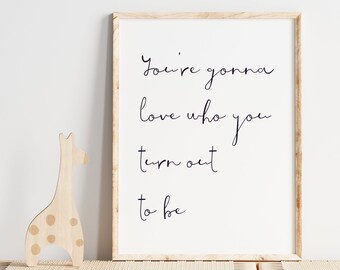 You're gonna
love who you
turn out
to be